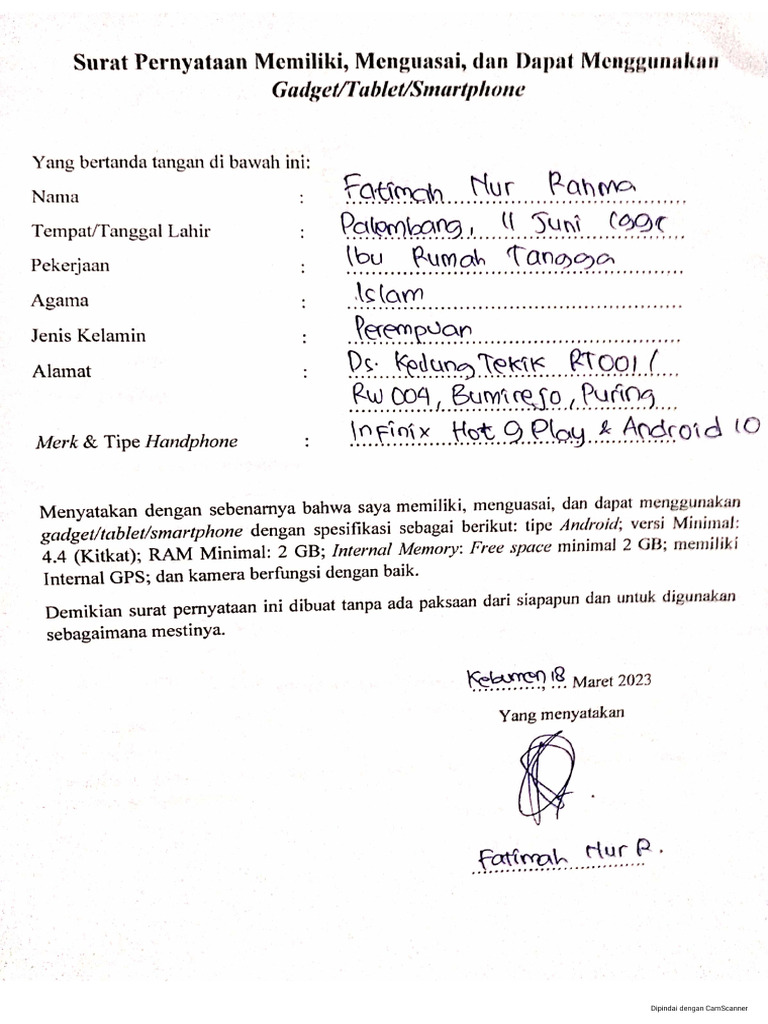 Surat Pernyataan Memiliki, Menguasai, dan Dapat Menggunakan
Gadget/Tablet/Smartphone
Yang bertanda tangan di bawah ini:
Nama : Fatimah Nur Rahma
Tempat/Tanggal Lahir : Palembang, 11 Juni
Pekerjaan : Ibu Rumah Tangga
Agama : Islam
Jenis Kelamin : Perempuan
Alamat : Ds. Kedung Tekik RT001/
RW 004, Bumirejo, Puring
Merk & Tipe Handphone : Infinix Hot 9 Play & Android 10
Menyatakan dengan sebenarnya bahwa saya memiliki, menguasai, dan dapat menggunakan
gadget/tablet/smartphone dengan spesifikasi sebagai berikut: tipe Android; versi Minimal:
4.4 (Kitkat); RAM Minimal: 2 GB; Internal Memory: Free space minimal 2 GB; memiliki
Internal GPS; dan kamera berfungsi dengan baik.
Demikian surat pernyataan ini dibuat tanpa ada paksaan dari siapapun dan untuk digunakan
sebagaimana mestinya.
Kebumen, 18 Maret 2023
Yang menyatakan
Fatimah Nur R.
Dipindai dengan CamScanner